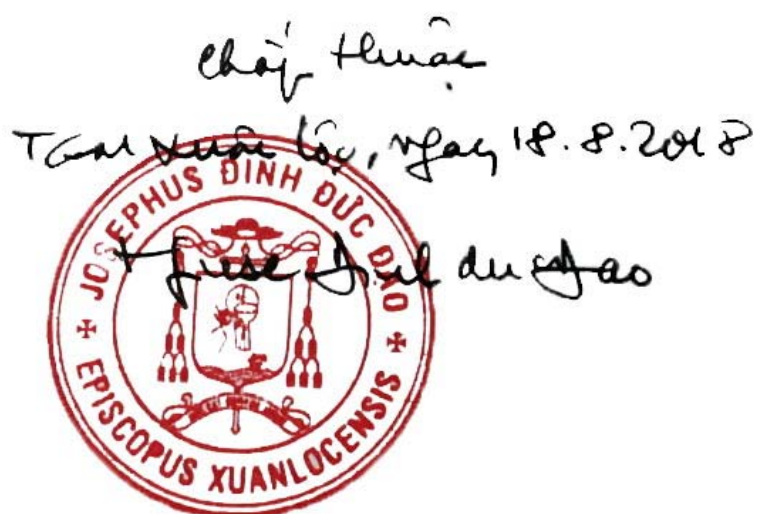 Chấp thuận
Tại Xuân Lộc, ngày 18.8.2018
JOSEPHUS ĐINH ĐỨC ĐẠO
+ Giuse Đinh Đức Đạo
EPISCOPUS XUANLOCENSIS